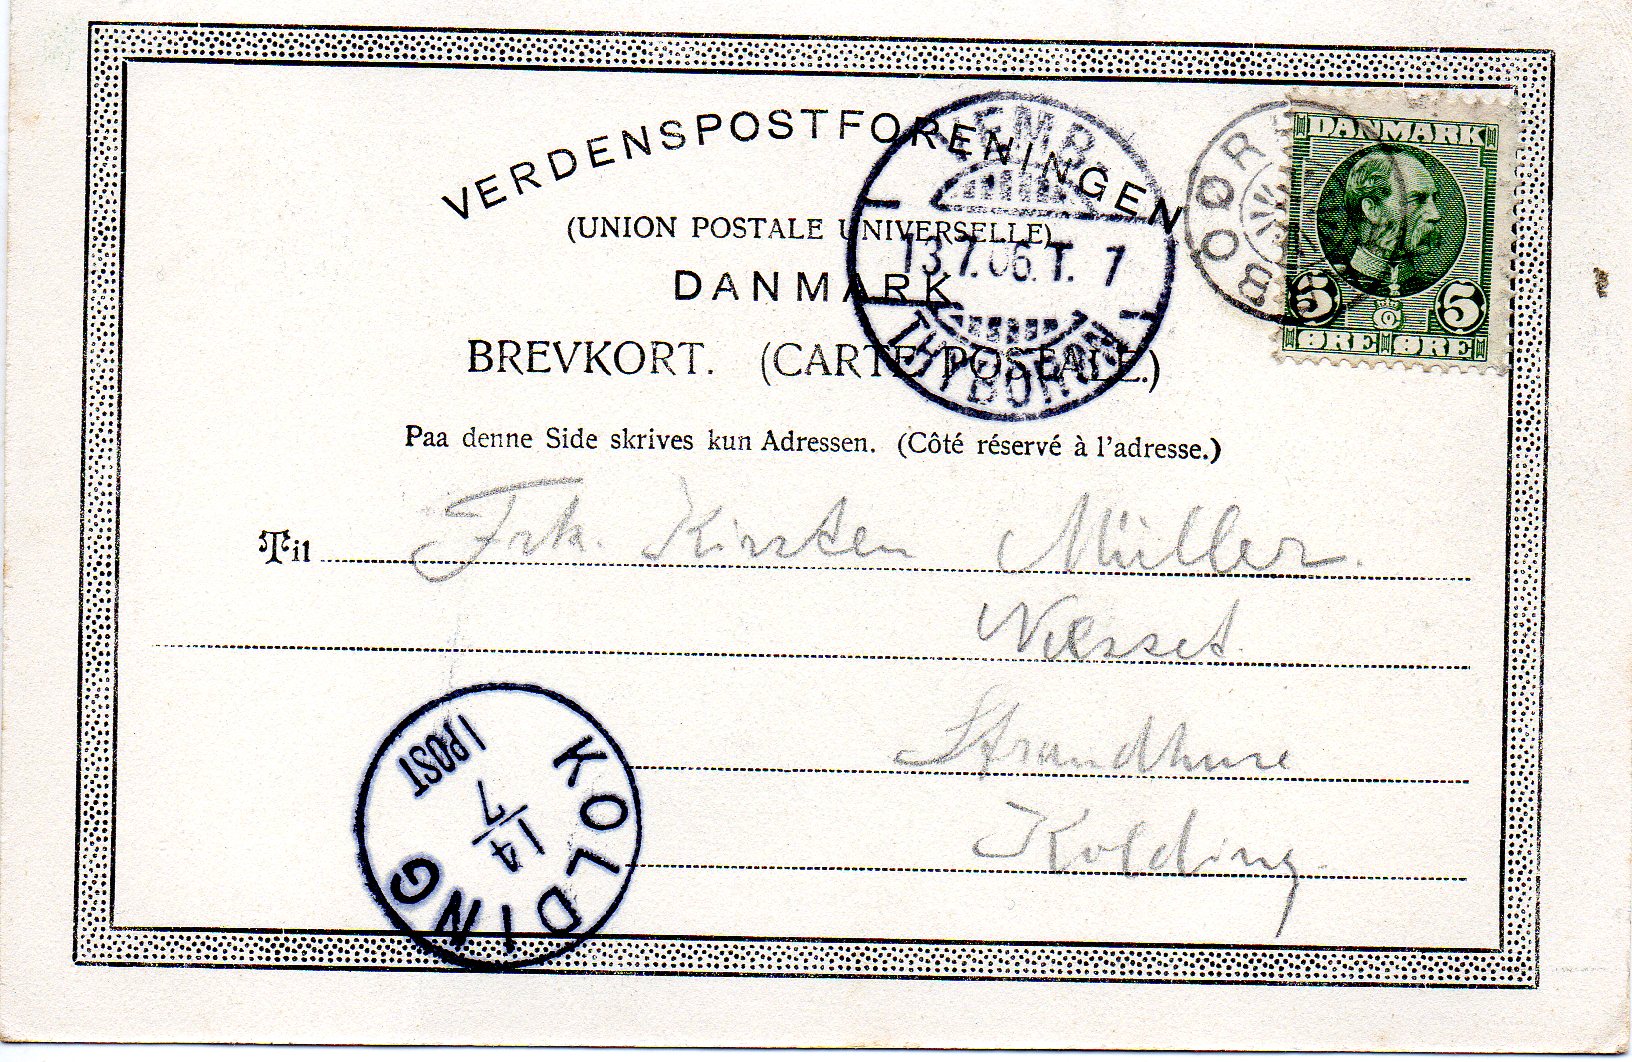 VERDENSPOSTFORENINGEN
(UNION POSTALE UNIVERSELLE)
DANMARK
BREVKORT. (CARTE POSTALE.)
Paa denne Side skrives kun Adressen. (Côté réservé à l'adresse.)
LEMVIG
13.7.06.T. 1
THYBORØN
DANMARK
5 5
ØRE ØRE
Til Frk. Kirsten Müller.
Næsset
Strandhuse
Kolding.
KOLDING
14/7
1 POST